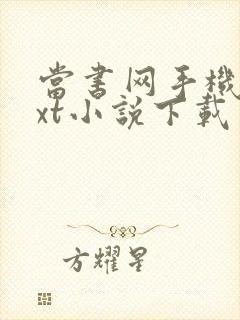 當書网手機
xt小說下載
方耀星